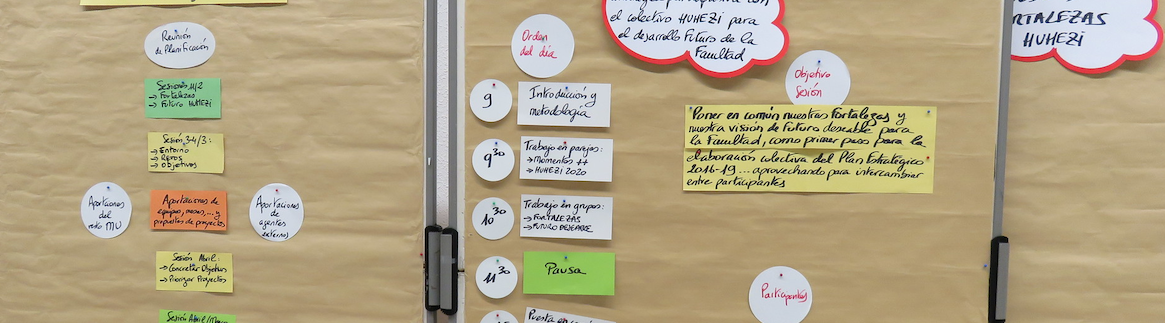 Reunión
de Planificación
Sesiones 1/2
→ Fortalezas
→ Futuro HUHEZI
Sesión 3-4/3:
→ Entorno
→ Retos
→ Objetivos
Aportaciones
del
resto MU
Aportaciones de
equipos, mesas, ... y
propuestas de proyectos
Aportaciones
de
agentes
externos
Sesión Abril:
→ Concretar Objetivos
→ Priorizar Proyectos
Sesión Abril/Mayo
Orden
del día
9
Introducción y
metodología
9 30
Trabajo en parejas:
→ Momentos ++
→ HUHEZI 2020
10 30
Trabajo en grupos:
→ FORTALEZAS
→ FUTURO DESEABLE
11 30
Pausa
Puesta en
con
el colectivo HUHEZI para
el desarrollo futuro de la
Facultad
Objetivo
Sesión
Poner en común nuestras fortalezas y
nuestra visión de futuro deseable para
la Facultad, como primer paso para la
elaboración colectiva del Plan Estratégico
2016-19 ... aprovechando para intercambiar
entre participantes
Participantes
FORTALEZAS
HUHEZI